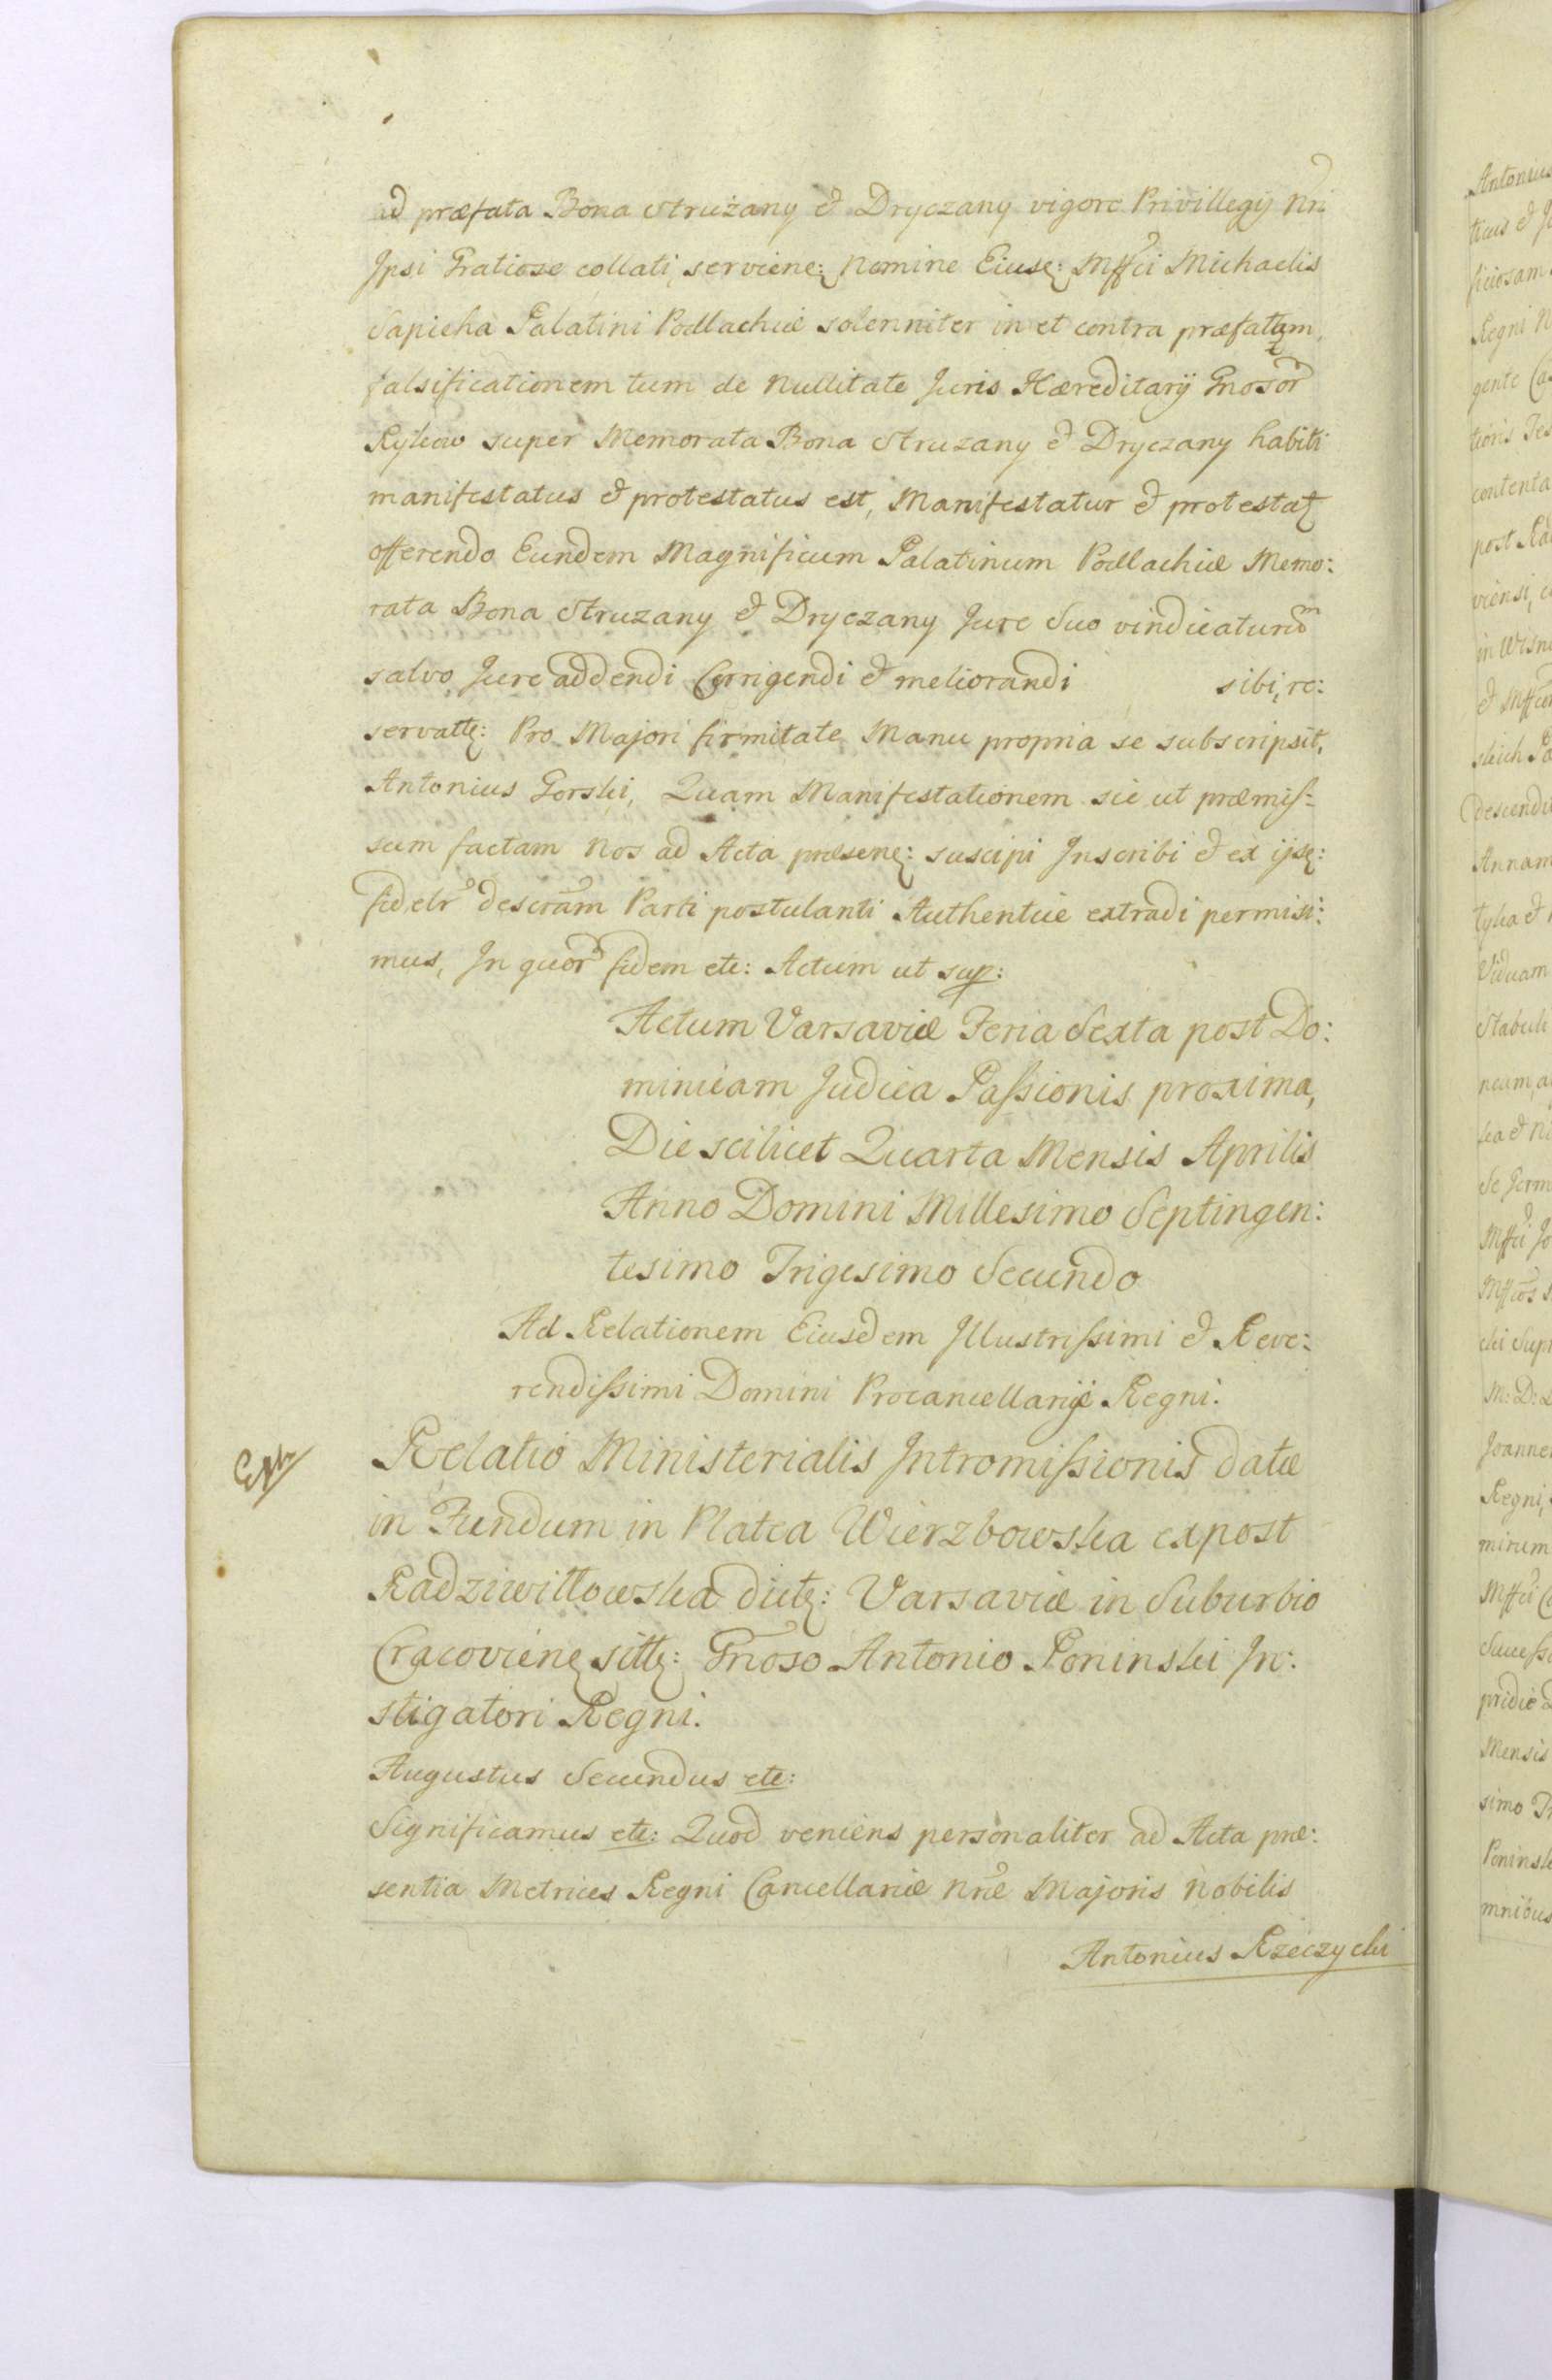 ad præfata Bona Strużany & Dryczany vigore Privillegij Nri
Jpsi Gratiose collati, serviene: Nomine Eiusq: Mffci Michaelis
Sapieha Palatini Podlachiæ solenniter in et contra præfatam,
falsificationem tum de Nullitate Juris Hæreditarij Gnosor
Rykow super Memorata Bona Struzany & Dryczany habiti
manifestatus & protestatus est, Manifestatur & protestat
offerendo Eundem Magnificum Palatinum Podlachiæ Memo:
rata Bona Struzany & Dryczany Jure Suo vindicaturum
salvo Jure addendi Corrigendi & meliorandi sibi, re:
servatt: Pro Majori firmitate Manu propria se subscripsit,
Antonius Gorski, Quam Manifestationem sic ut præmiſ=
sum factam Nos ad Acta præsene: suscipi Jnscribi & ex ijsq:
fidelr descram Parti postulanti Authentice extradi permisi:
mus, Jn quor fidem etc: Actum ut sup:
Actum Varsaviæ Feria Sexta post Do:
minicam Judica Paſsionis proxima,
Die scilicet Quarta Mensis Aprilis
Anno Domini Millesimo Septingen:
tesimo Trigesimo Secundo
Ad Relationem Eiusdem Jllustriſsimi & Reve:
rendiſsimi Domini Procancellarij Regni.
Relatio Ministerialis Jntromiſsionis datæ
in Fundum in Platea Wierzbowska expost
Radziwiłłowska dict: Varsaviæ in Suburbio
Cracoviene sitt: Gnoso Antonio Poninski Jn:
stigatori Regni.
Augustus Secundus etc:
Significamus etc: Quod veniens personaliter ad Acta præ:
sentia Metrices Regni Cancellariæ Nræ Majoris Nobilis
Antonius Rzeczycki